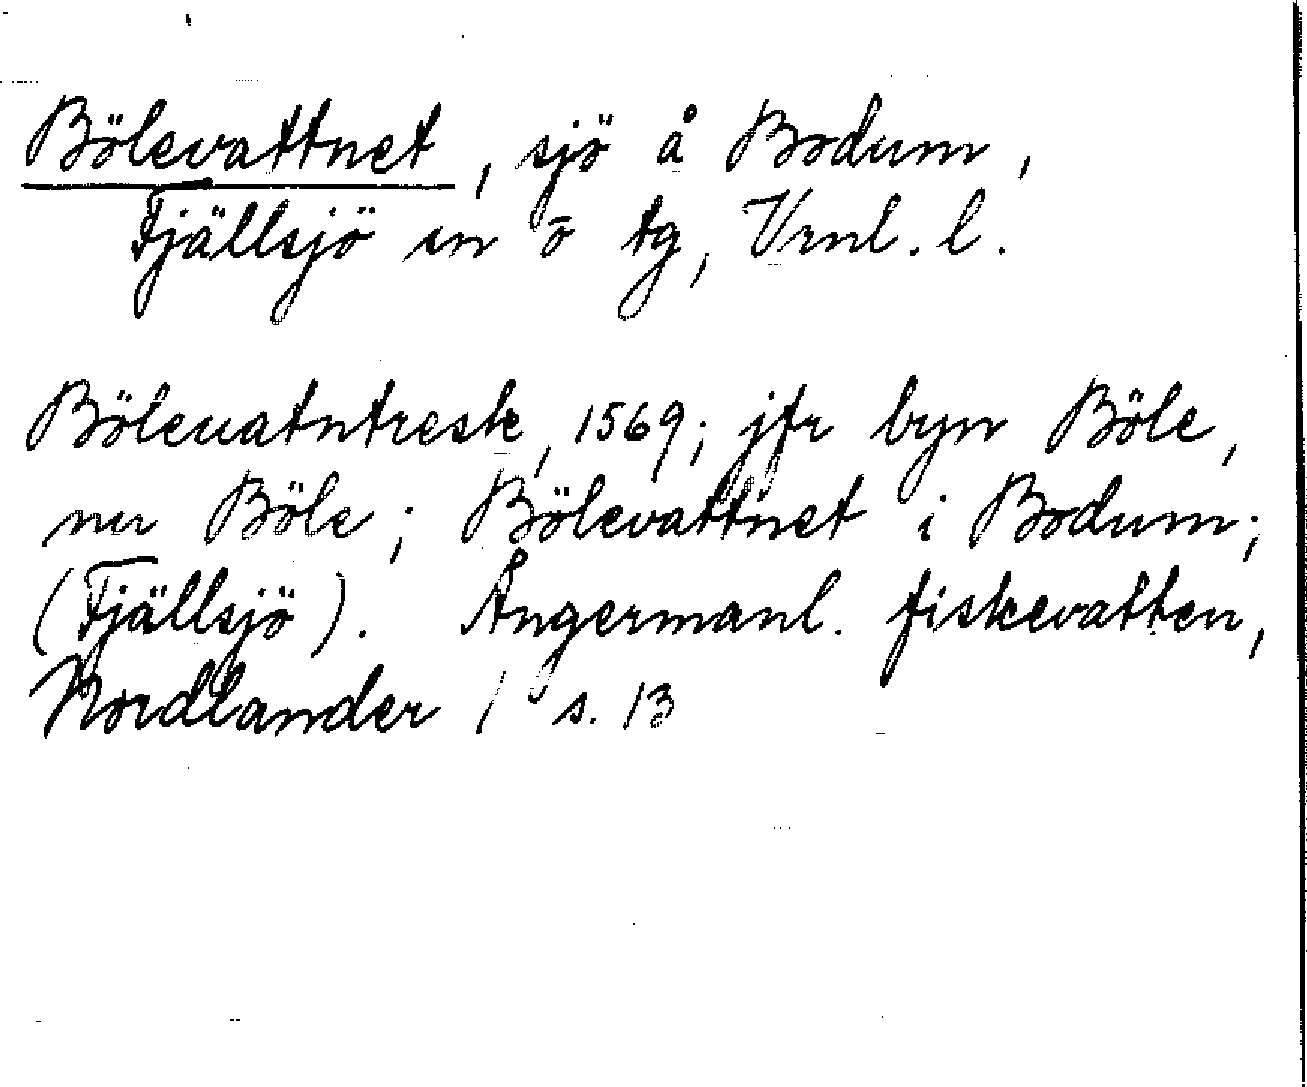 Bölevattnet, sjö å Bodum,
Fjällsjö sn o tg, Vrnl. l.
Böleuatntresk, 1569; jfr byn Böle,
nu Böle; Bölevattnet i Bodum;
(Fjällsjö). Ångermanl. fiskevatten,
Nordlander / s. 13